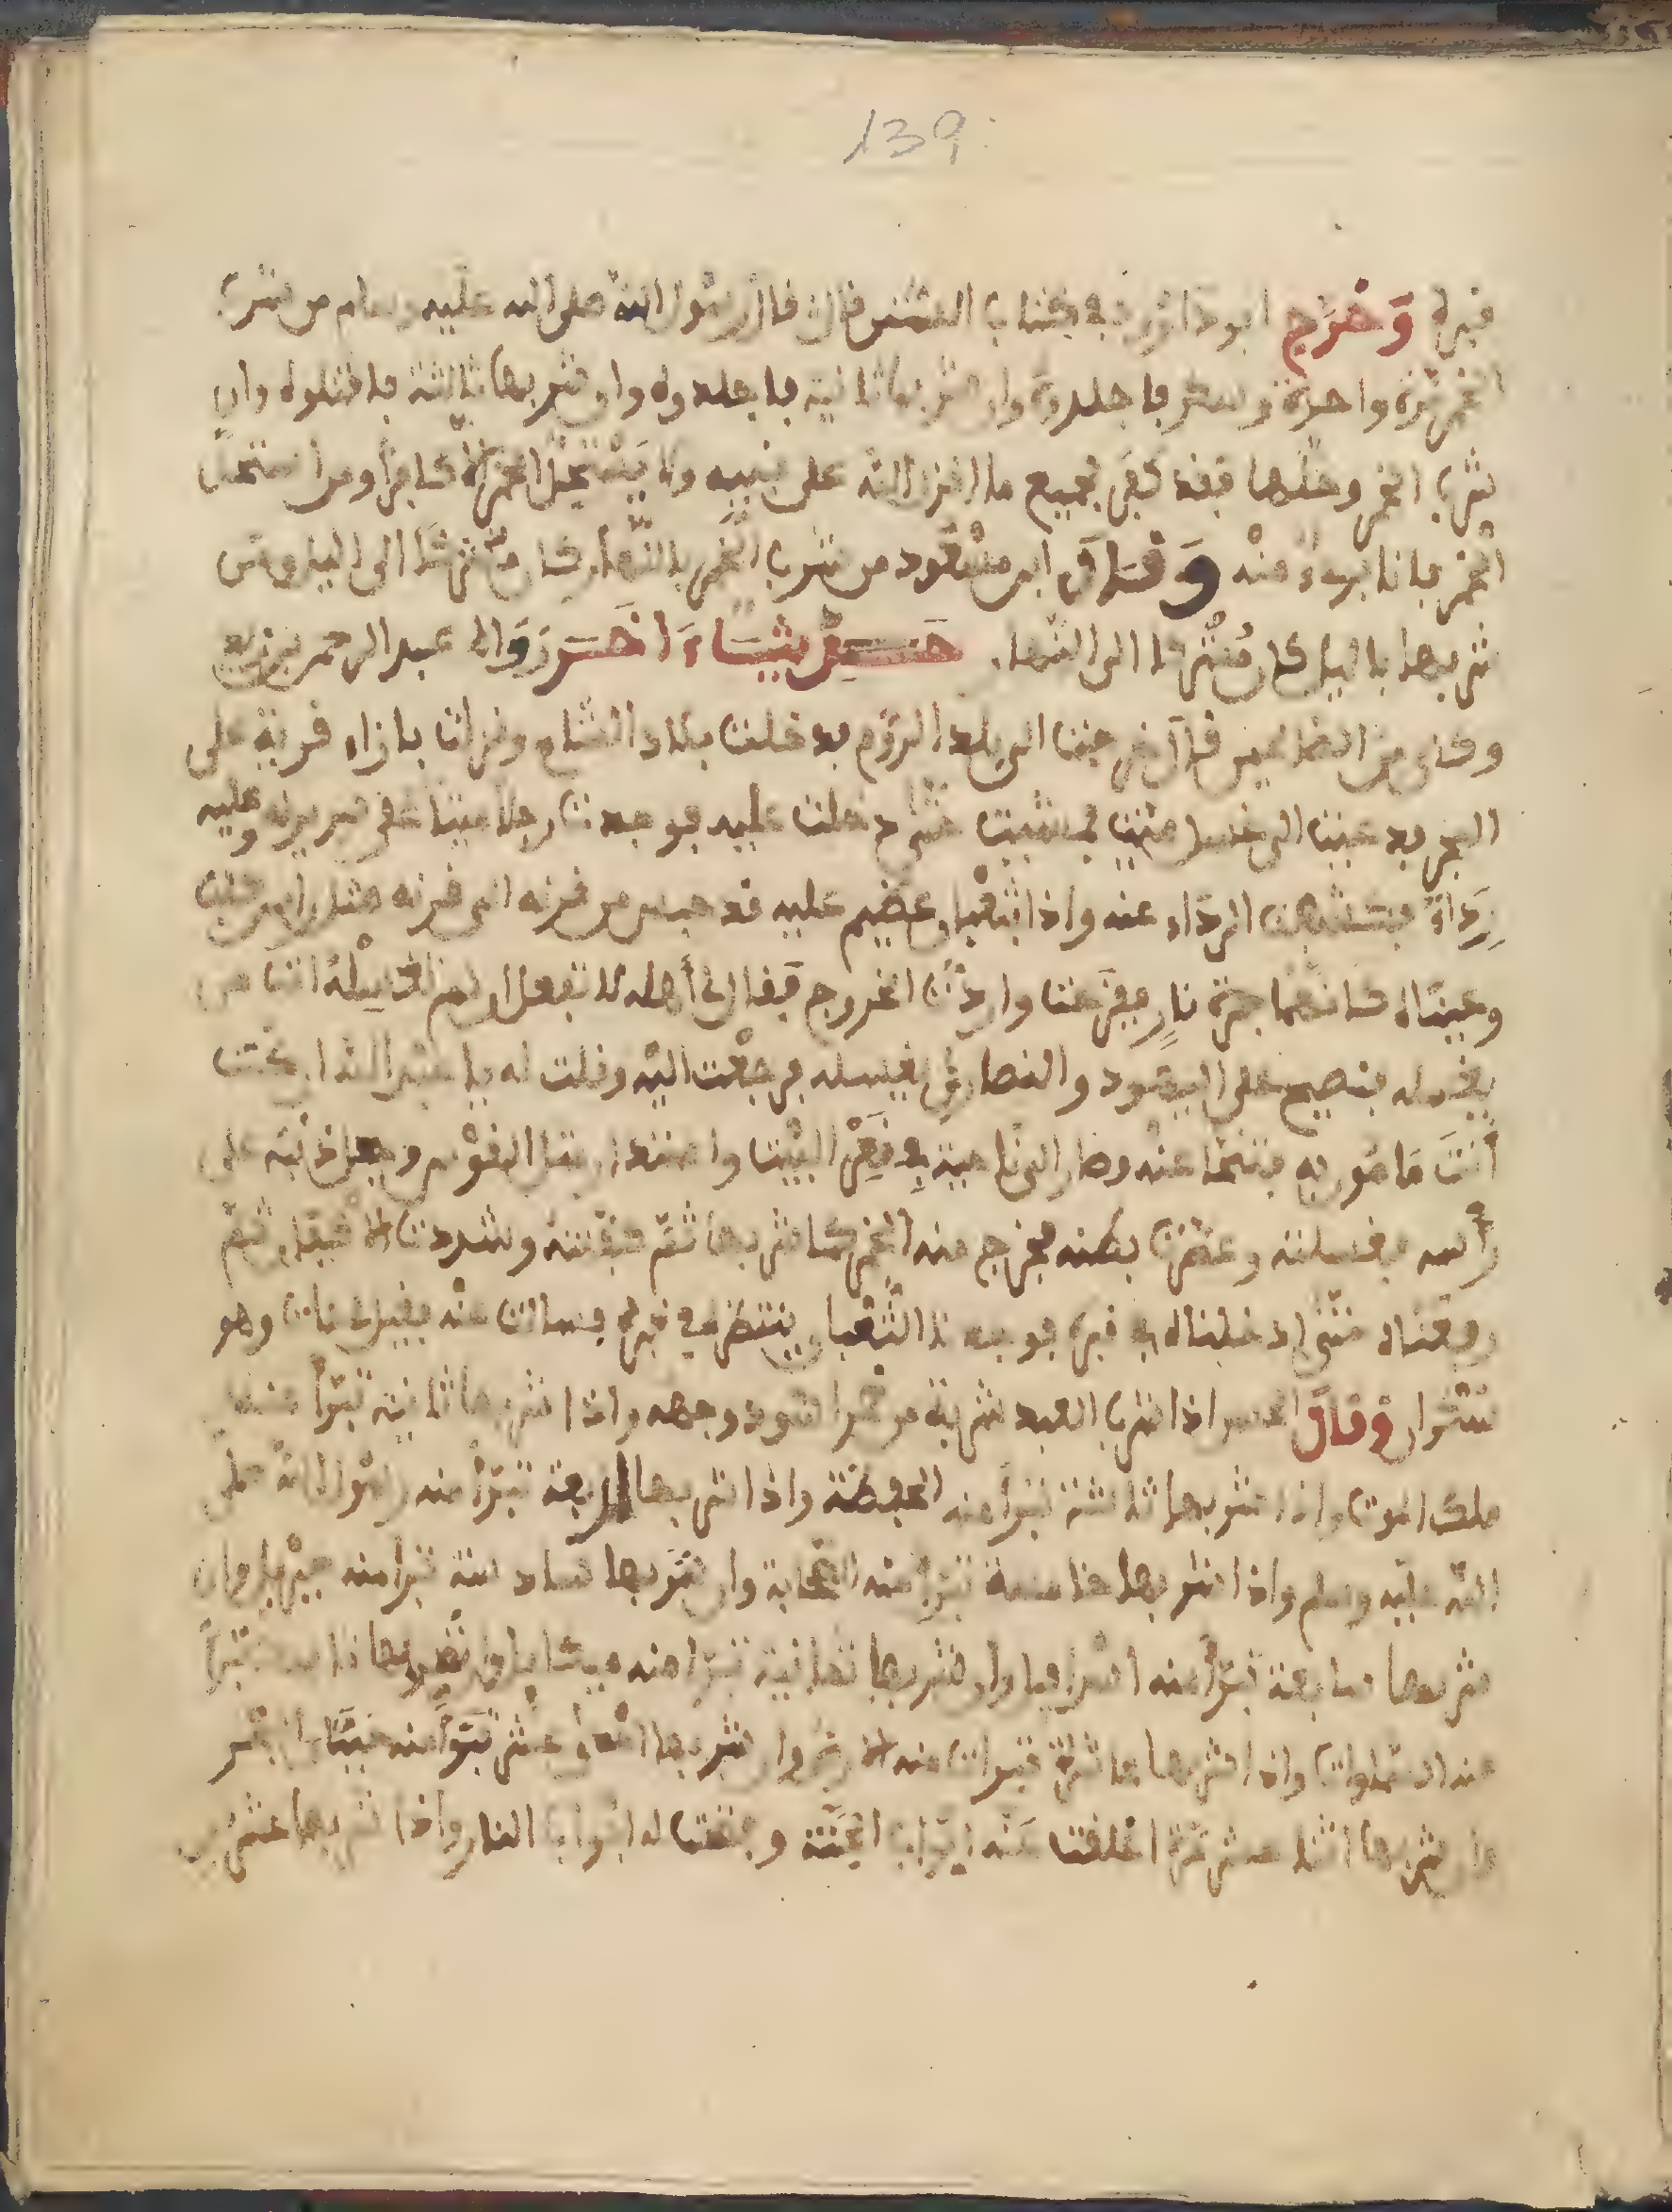 139
قبره وَخرَّج ابو داوٗد في كتاب السنن قال قال رسول الله صلى الله عليه وسلم من شرب
الخمر مرة واحدة وسكر فاجلدوه وان شربها ثانية فاجلدوه وان شربها ثالثة فاقتلوه وان
شرب الخمر وحللها فقد كفر بجميع ما انزل الله على نبيه ولا يستحل الخمر الا كافرا ومن استحل
الخمر فانا بريء منه وَقَال ابن مسعود من شرب الخمر بالنهار كان مشركا الى الليل ومن
شربها بالليل كان مشركا الى النهار حديث اخر رواه عبد الرحمن بن
وكان من الخائفين قال خرجنا الى بلد الروم فدخلنا بلاد الشام ونزلنا بازاء قرية على
البحر فدعينا الى غسل ميت فمشيت حتى دخلت عليه فوجدت رجلا ميتا على سريره وعليه
رداء فكشفت الرداء عنه واذا بثعبان عظيم عليه قد حبس من قرنه الى قرنه
وعيناه كانهما جمرة نار ففزعنا واردت الخروج فقال لي أهله لا تفعل ان لم تغسله انت من
يغسله فنصيح على اليهود والنصارى يغسله فرجعت اليه وقلت له يا عبد الله ان كنت
أنت مامور به فتنحا عنه وصار الى ناحية في قعر البيت واستدار مثل القوس وجعل ذنبه على
رأسه فغسلته وعصرت بطنه فخرج منه الخمر كما شربها ثم كفنته وشددت الاكفان ثم
رفعناه حتى ادخلناه في قبره فوجدنا الثعبان ينتظر في قبره فسالت عنه فقيل لنا مات وهو
سكران وقال الحسن اذا شرب العبد شربة من خمر اسود وجهه واذا شربها ثانية تبرأ منه
ملك الموت واذا شربها ثالثة تبرأ منه الحفظة واذا شربها اربعة تبرأ منه رسول الله صلى
الله عليه وسلم واذا شربها خامسة تبرأ منه الصحابة وان شربها سادسة تبرأ منه جبريل وان
شربها سابعة تبرأ منه اسرافيل وان شربها ثمانية تبرا منه ميكايل وان شربها تاسعة تبرأ
منه السماوات واذا شربها عاشرة تبرات منه الارض وان شربها احدى عشر تبرأ منه حيتان البحر
وان شربها اثنا عشر مرة اغلقت عنه ابواب الجنة وفتحت له ابواب النار واذا شربها عشرين